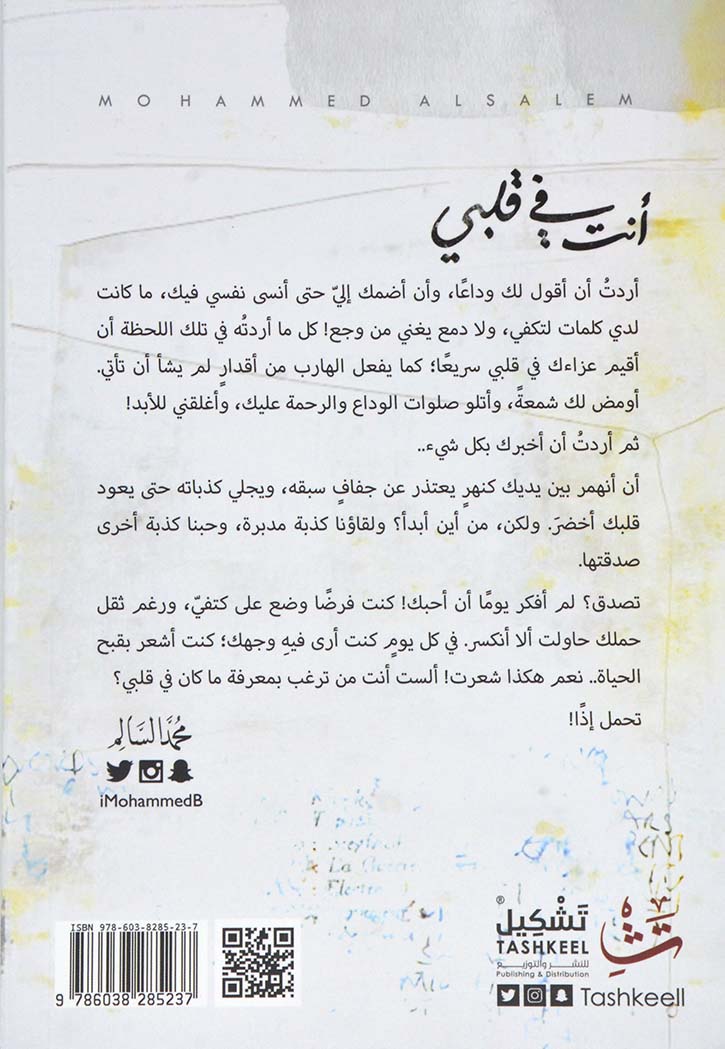 MOHAMMED ALSALEM
أنت في قلبي
أردتُ أن أقول لك وداعًا، وأن أضمك إليّ حتى أنسى نفسي فيك، ما كانت
لدي كلمات لتكفي، ولا دمع يغني من وجع! كل ما أردتُه في تلك اللحظة أن
أقيم عزاءك في قلبي سريعًا؛ كما يفعل الهارب من أقدارٍ لم يشأ أن تأتي.
أومض لك شمعةً، وأتلو صلوات الوداع والرحمة عليك، وأغلقني للأبد!
ثم أردتُ أن أخبرك بكل شيء..
أن أنهمر بين يديك كنهرٍ يعتذر عن جفافٍ سبقه، ويجلي كذباته حتى يعود
قلبك أخضرَ. ولكن، من أين أبدأ؟ ولقاؤنا كذبة مدبرة، وحبنا كذبة أخرى
صدقتها.
تصدق؟ لم أفكر يومًا أن أحبك! كنت فرضًا وضع على كتفيّ، ورغم ثقل
حملك حاولت ألا أنكسر. في كل يومٍ كنت أرى فيهِ وجهك؛ كنت أشعر بقبح
الحياة.. نعم هكذا شعرت! ألست أنت من ترغب بمعرفة ما كان في قلبي؟
تحمل إذًا!
محمد السالم
iMohammedB
ISBN 978-603-8285-23-7
9 786038 285237
تشكيل®
TASHKEEL
للنشر والتوزيع
Publishing & Distribution
Tashkeell